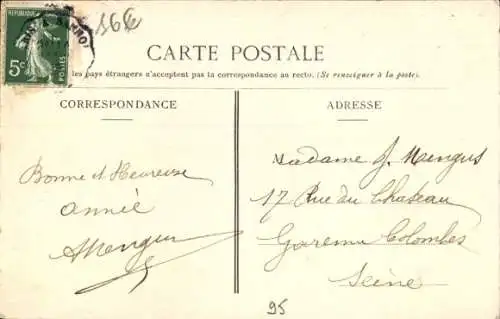 166
REPUBLIQUE FRANÇAISE
5c
POSTES
CARTE POSTALE
les pays étrangers n'acceptent pas la correspondance au recto. (Se renseigner à la poste).
CORRESPONDANCE
ADRESSE
Bonne et Heureuse
année
AMengus
Madame J. Mengus
17 Rue du Chateau
Garenne Colombes
Seine
95